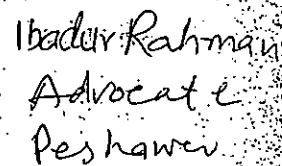 Ibadur Rahman
Advocate
Peshawer